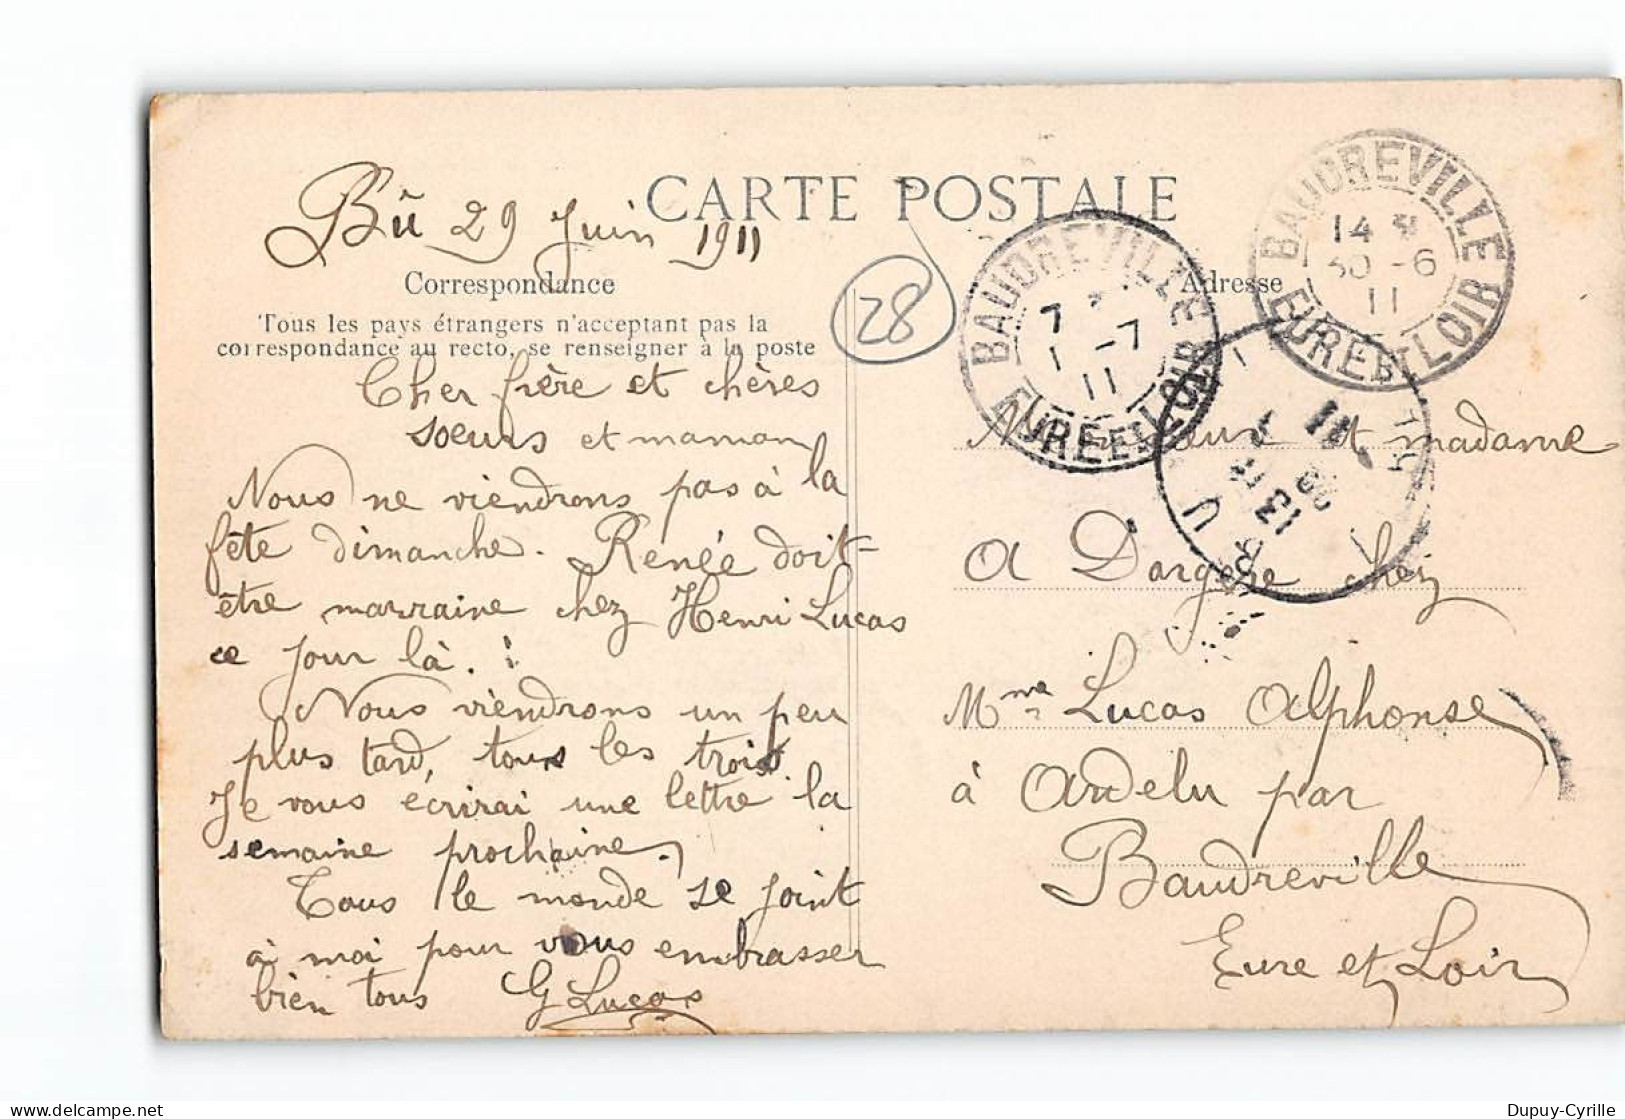 CARTE POSTALE
Bû 29 Juin 1911
Correspondance
Tous les pays étrangers n'acceptant pas la
correspondance au recto, se renseigner à la poste
28
Cher frère et chères
soeurs et maman
Nous ne viendrons pas à la
fête dimanche. Renée doit-
être marraine chez Henri Lucas
ce jour là.
Nous viendrons un peu
plus tard, tous les trois.
Je vous écrirai une lettre la
semaine prochaine.
Tous le monde se joint
à moi pour vous embrasser
bien tous G Lucas
Adresse
BAUDREVILLE
14
30 -6
11
EURE ET LOIR
BAUDREVILLE
7
1 -7
11
EURE ET LOIR
et madame
A Dargère chez
Mme Lucas Alphonse
à Ardelu par
Baudreville
Eure et Loir
Dupuy-Cyrille